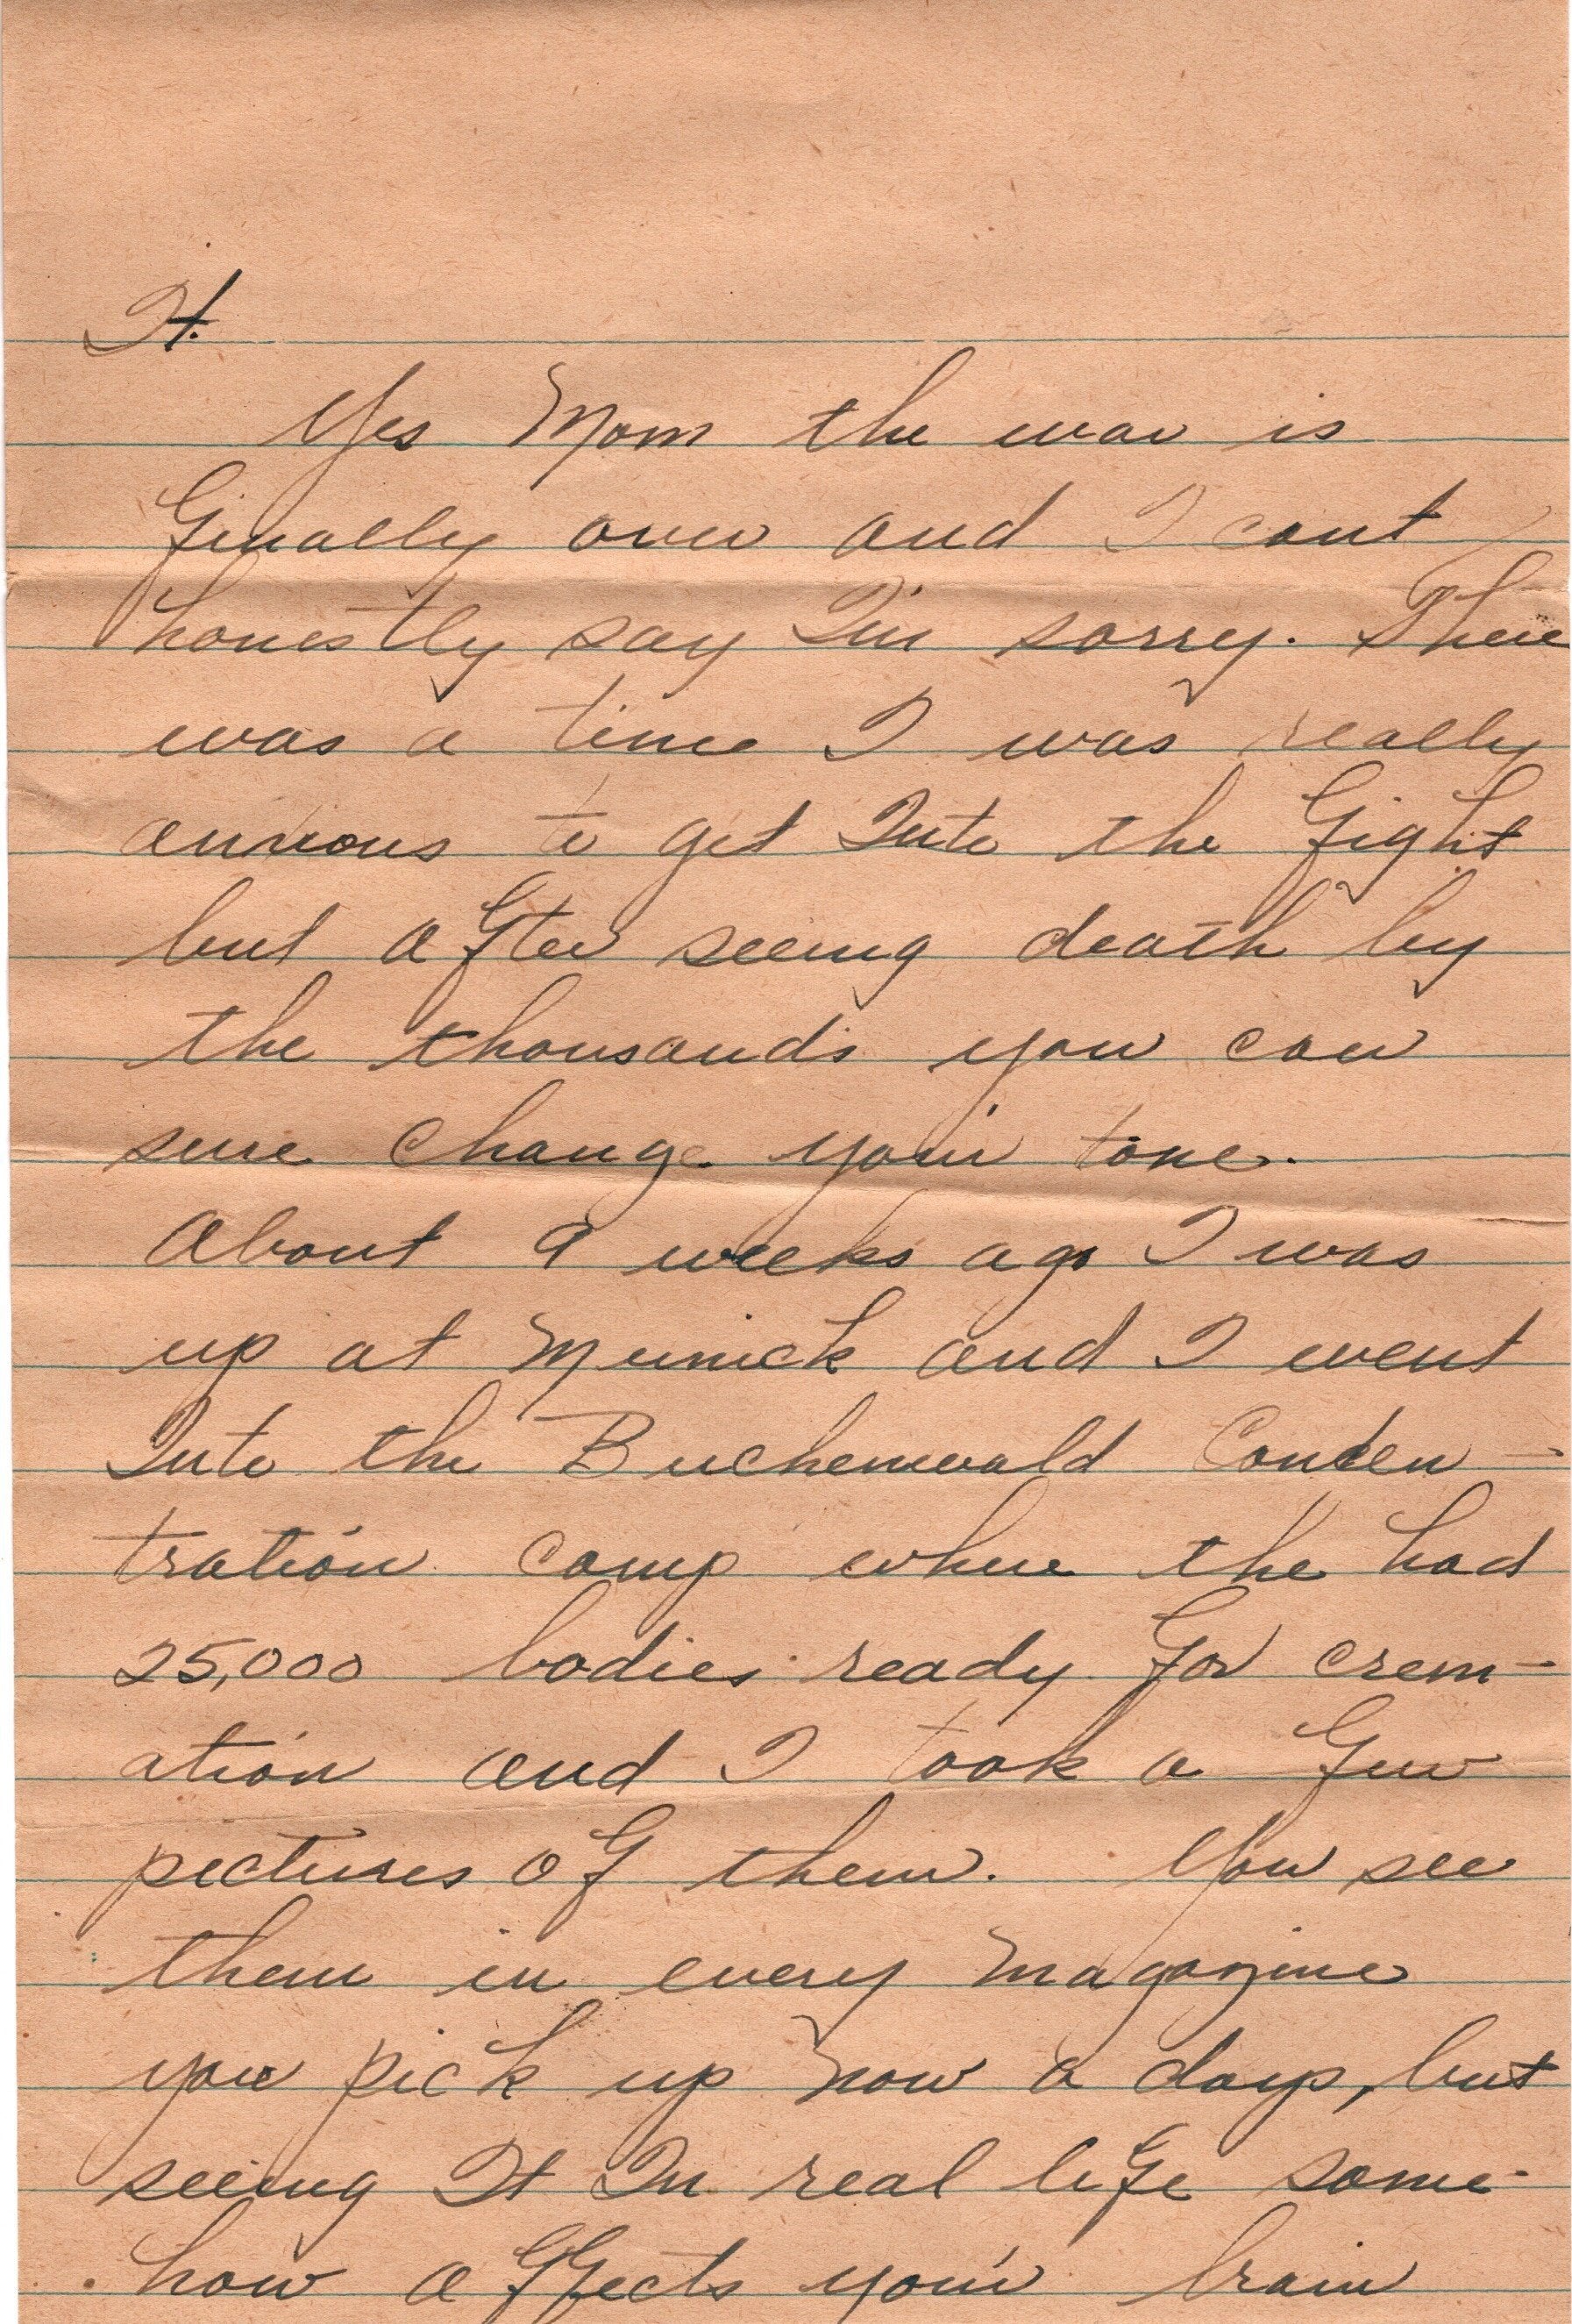 It.
Yes Mom the war is
finally over and I cant
honestly say Im sorry. There
was a time I was really
anxious to get Into the fight
but after seeing death by
the thousands you can
sure change your tone.
About 9 weeks ago I was
up at Munick and I went
Into the Buchenwald Concen-
tration camp where the had
25,000 bodies ready for crem-
ation and I took a few
pictures of them. You see
them in every magazine
you pick up now a days, but
seeing It In real life some-
how affects your brain